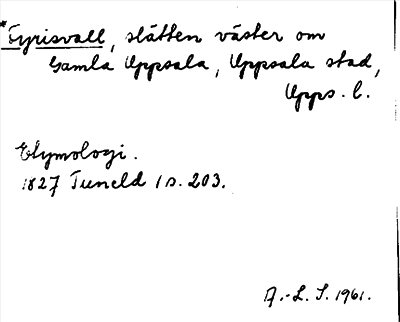 *Fyrisvall, slätten väster om
Gamla Uppsala, Uppsala stad,
Upps. l.
Etymologi.
1827 Tuneld 1 s. 203.
A.-L. S. 1961.